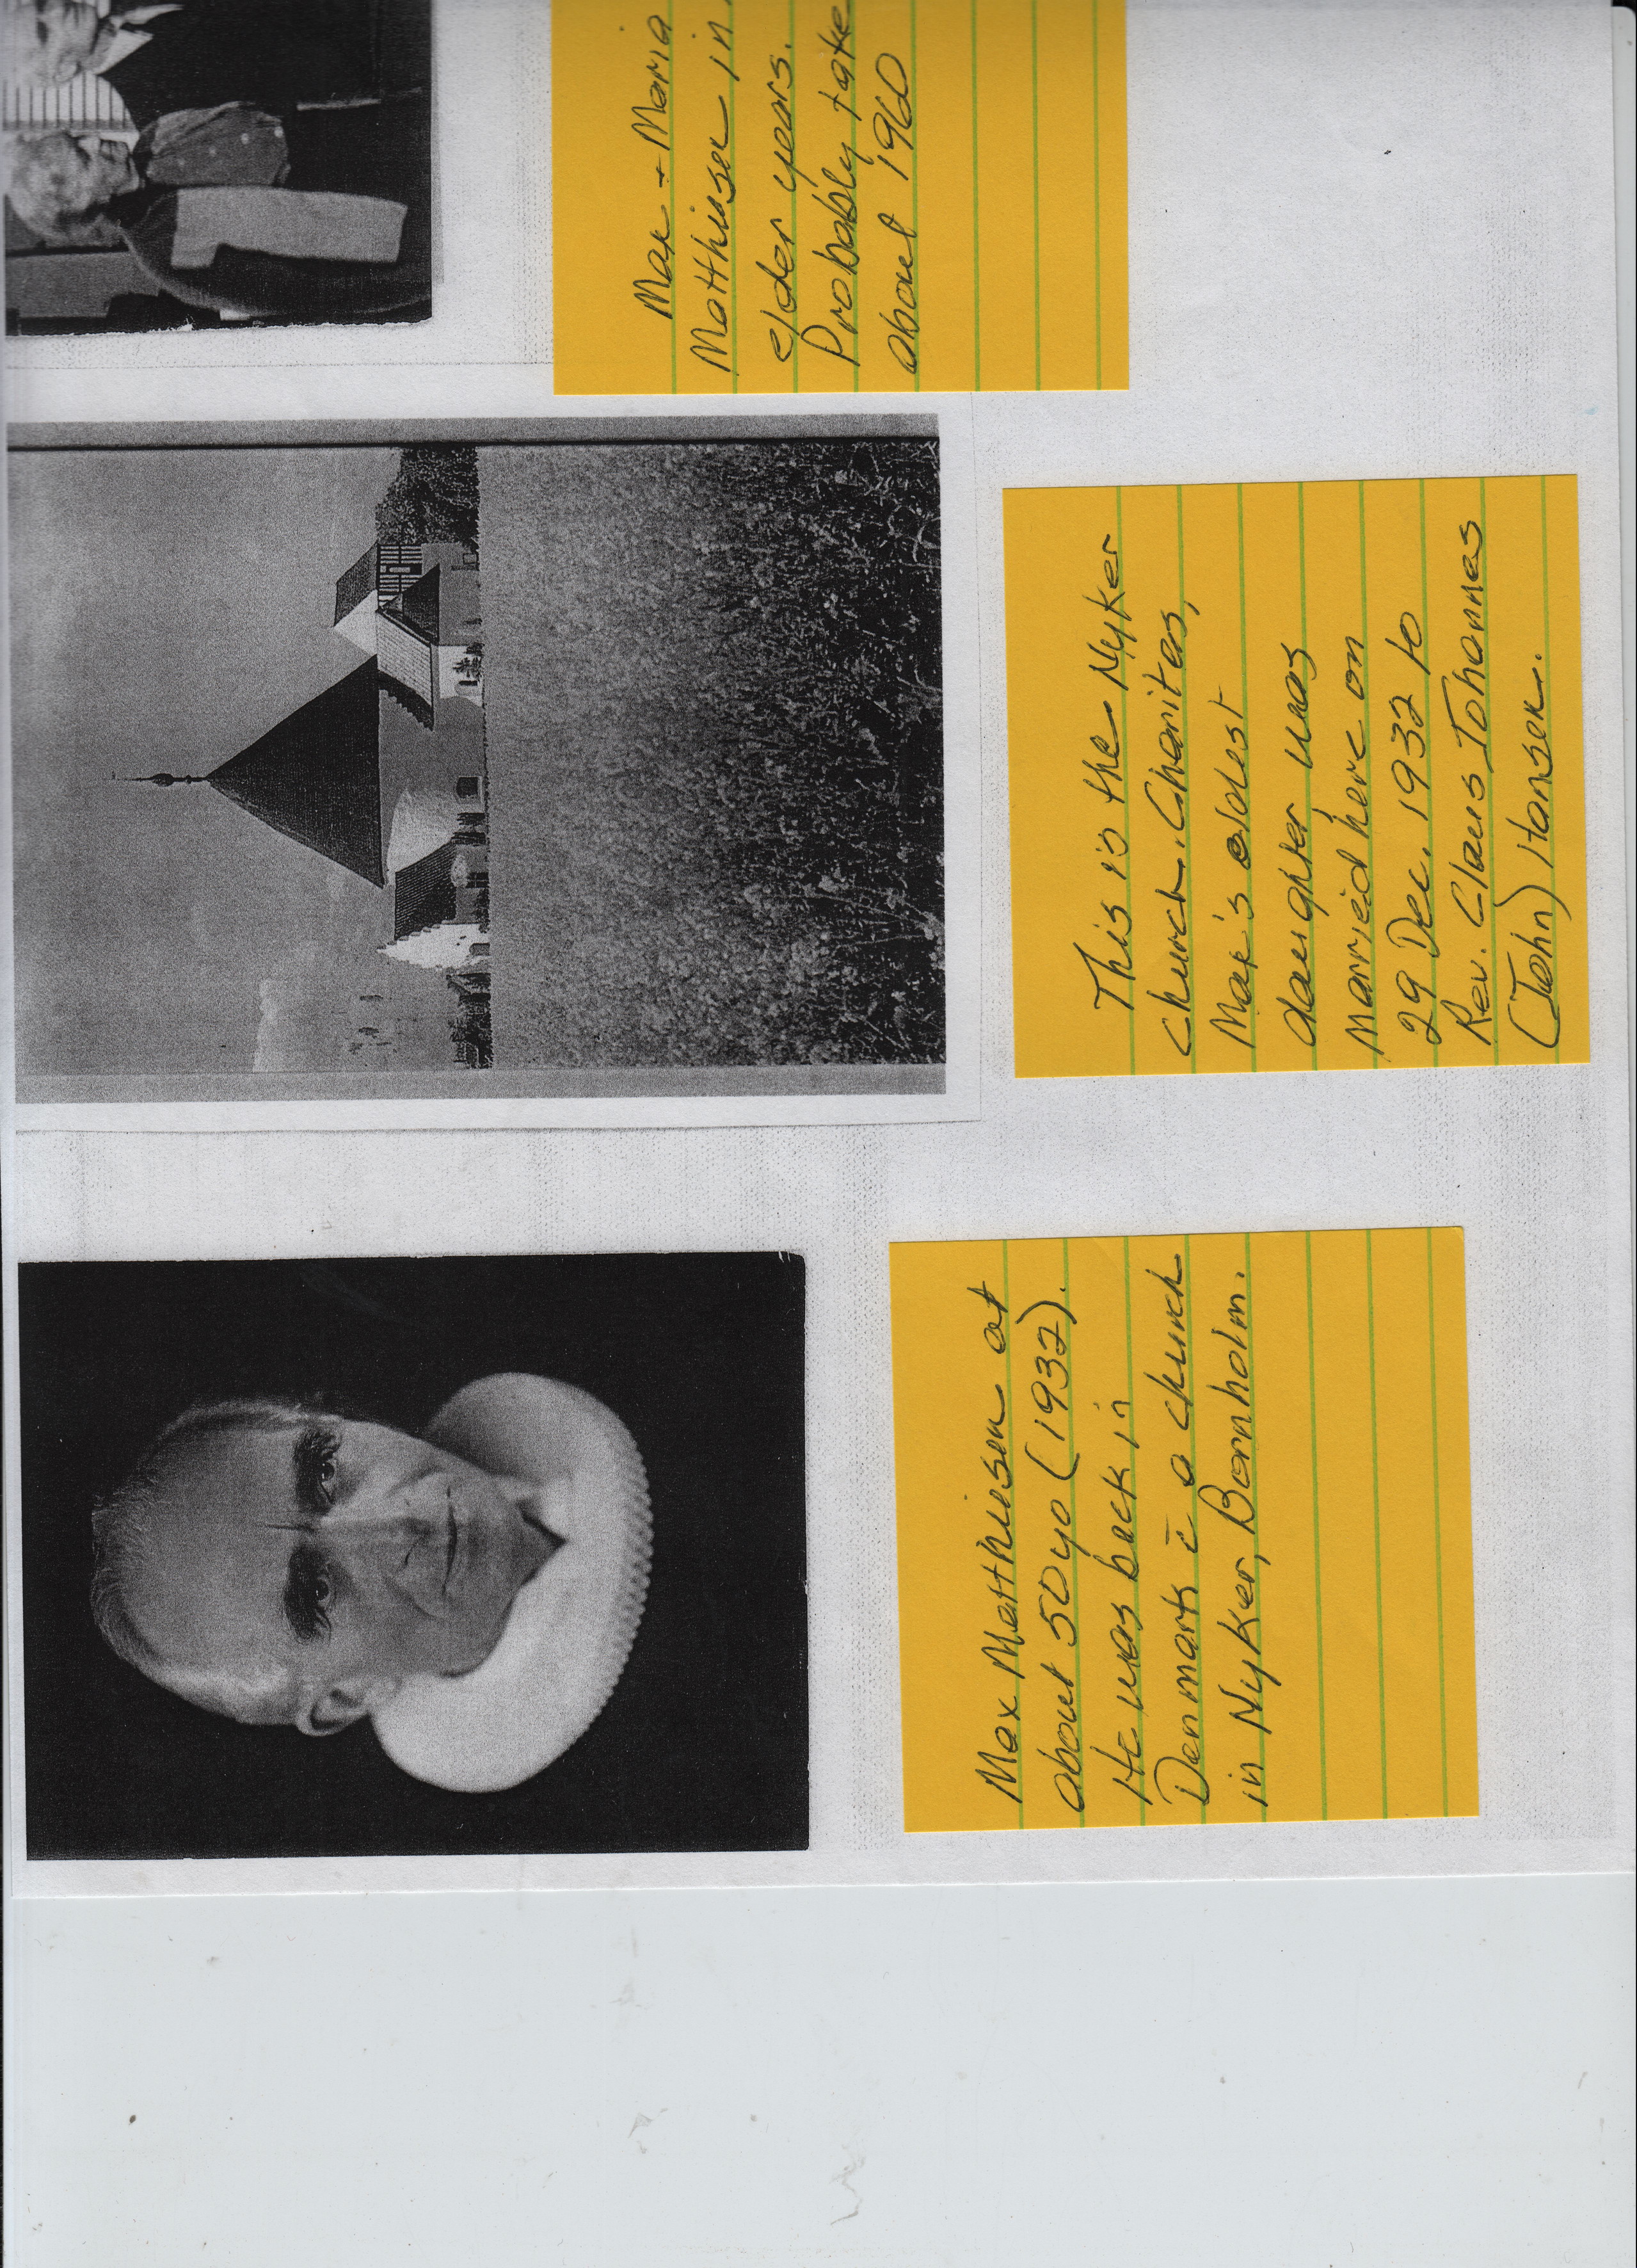 Max Matthiesen at
about 50 yo (1932).
He was back in
Denmark c̄ a church
in Nyker, Bornholm.
This is the Nyker
church. Charites,
Max's oldest
daughter was
married here on
29 Dec. 1932 to
Rev. Claus Johannes
(John) Hansen.
Max + Maria
Matthiesen in
elder years.
Probably take
about 1960